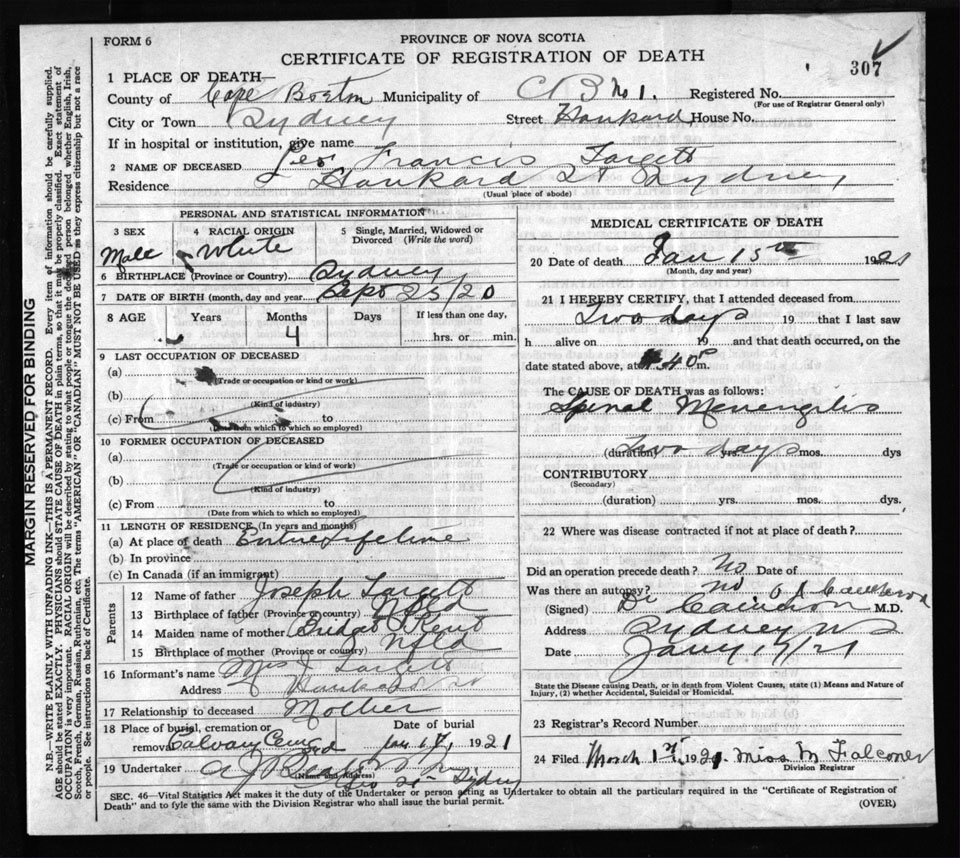 FORM 6
PROVINCE OF NOVA SCOTIA
CERTIFICATE OF REGISTRATION OF DEATH
307
1 PLACE OF DEATH—
County of Cape Breton Municipality of C B No 1. Registered No.
(For use of Registrar General only)
City or Town Sydney Street Hankard House No.
If in hospital or institution, give name
2 NAME OF DECEASED Leo Francis Targett
Residence Hankard St Sydney
(Usual place of abode)
PERSONAL AND STATISTICAL INFORMATION
3 SEX 4 RACIAL ORIGIN 5 Single, Married, Widowed or Divorced (Write the word)
Male White
6 BIRTHPLACE (Province or Country) Sydney
7 DATE OF BIRTH (month, day and year) Sept 25/20
8 AGE Years Months Days If less than one day,
4 hrs. or min.
9 LAST OCCUPATION OF DECEASED
(a)
(Trade or occupation or kind or work)
(b)
(Kind of industry)
(c) From to
(Date from which to which so employed)
10 FORMER OCCUPATION OF DECEASED
(a)
(Trade or occupation or kind of work)
(b)
(Kind of industry)
(c) From to
(Date from which to which so employed)
11 LENGTH OF RESIDENCE (In years and months)
(a) At place of death Entire Lifetime
(b) In province
(c) In Canada (if an immigrant)
Parents
12 Name of father Joseph Targett
13 Birthplace of father (Province or country) Nfld
14 Maiden name of mother Bridget Kent
15 Birthplace of mother (Province or country) Nfld
16 Informant's name Mrs J Targett
Address Hankard
17 Relationship to deceased Mother
18 Place of burial, cremation or removal Calvary Cem Syd Date of burial Jan 17, 1921
19 Undertaker A J Beaton
(Name and Address)
Geo St Sydney
MEDICAL CERTIFICATE OF DEATH
20 Date of death Jan 15th 1921
(Month, day and year)
21 I HEREBY CERTIFY, that I attended deceased from
Two days 19 that I last saw
h alive on 19 and that death occurred, on the
date stated above, at 40 P m.
The CAUSE OF DEATH was as follows:
Spinal Menengitis
(duration) Two days yrs. mos. dys
CONTRIBUTORY
(Secondary)
(duration) yrs. mos. dys.
22 Where was disease contracted if not at place of death?
Did an operation precede death? No Date of
Was there an autopsy? No
(Signed) Dr Cameron M.D.
Address Sydney NS
Date Jany 17/21
State the Disease causing Death, or in death from Violent Causes, state (1) Means and Nature of
Injury, (2) whether Accidental, Suicidal or Homicidal.
23 Registrar's Record Number
24 Filed March 1st, 1921 Miss M Falconer
Division Registrar
SEC. 46—Vital Statistics Act makes it the duty of the Undertaker or person acting as Undertaker to obtain all the particulars required in the "Certificate of Registration of
Death" and to fyle the same with the Division Registrar who shall issue the burial permit.
(OVER)
MARGIN RESERVED FOR BINDING
N.B.—WRITE PLAINLY WITH UNFADING INK—THIS IS A PERMANENT RECORD. Every item of information should be carefully supplied.
AGE should be stated EXACTLY. PHYSICIANS should STATE CAUSE OF DEATH in plain terms, so that it may be properly classified. Exact statement of
OCCUPATION is very important. RACIAL ORIGIN will be described by stating to what people or tongue the deceased person belonged whether English, Irish,
Scotch, French, German, Russian, Ruthenian, etc. The terms "AMERICAN" OR "CANADIAN" MUST NOT BE USED as they express citizenship but not a race
or people. See instructions on back of Certificate.